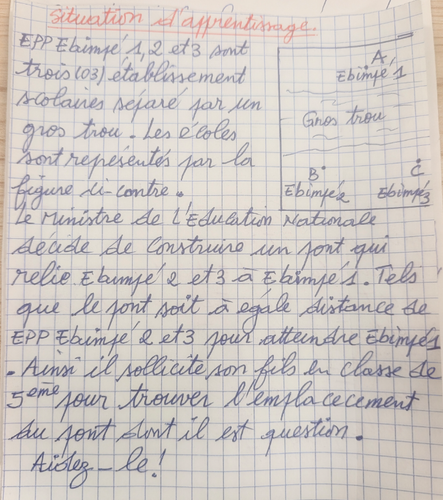 Situation d'apprentissage.
EPP Ebimpé 1, 2 et 3 sont
trois (03) établissement
scolaires séparé par un
gros trou. Les écoles
sont représentés par la
figure ci-contre.
A
Ebimpé 1
Gros trou
B
Ebimpé 2
C
Ebimpé 3
Le Ministre de l'Education Nationale
décide de construire un pont qui
relie Ebimpé 2 et 3 à Ebimpé 1. Tels
que le pont soit à egale distance de
EPP Ebimpé 2 et 3 pour atteindre Ebimpé 1
. Ainsi il sollicite son fils en classe de
5ème pour trouver l'emplacecement
du pont dont il est question.
Aidez-le !